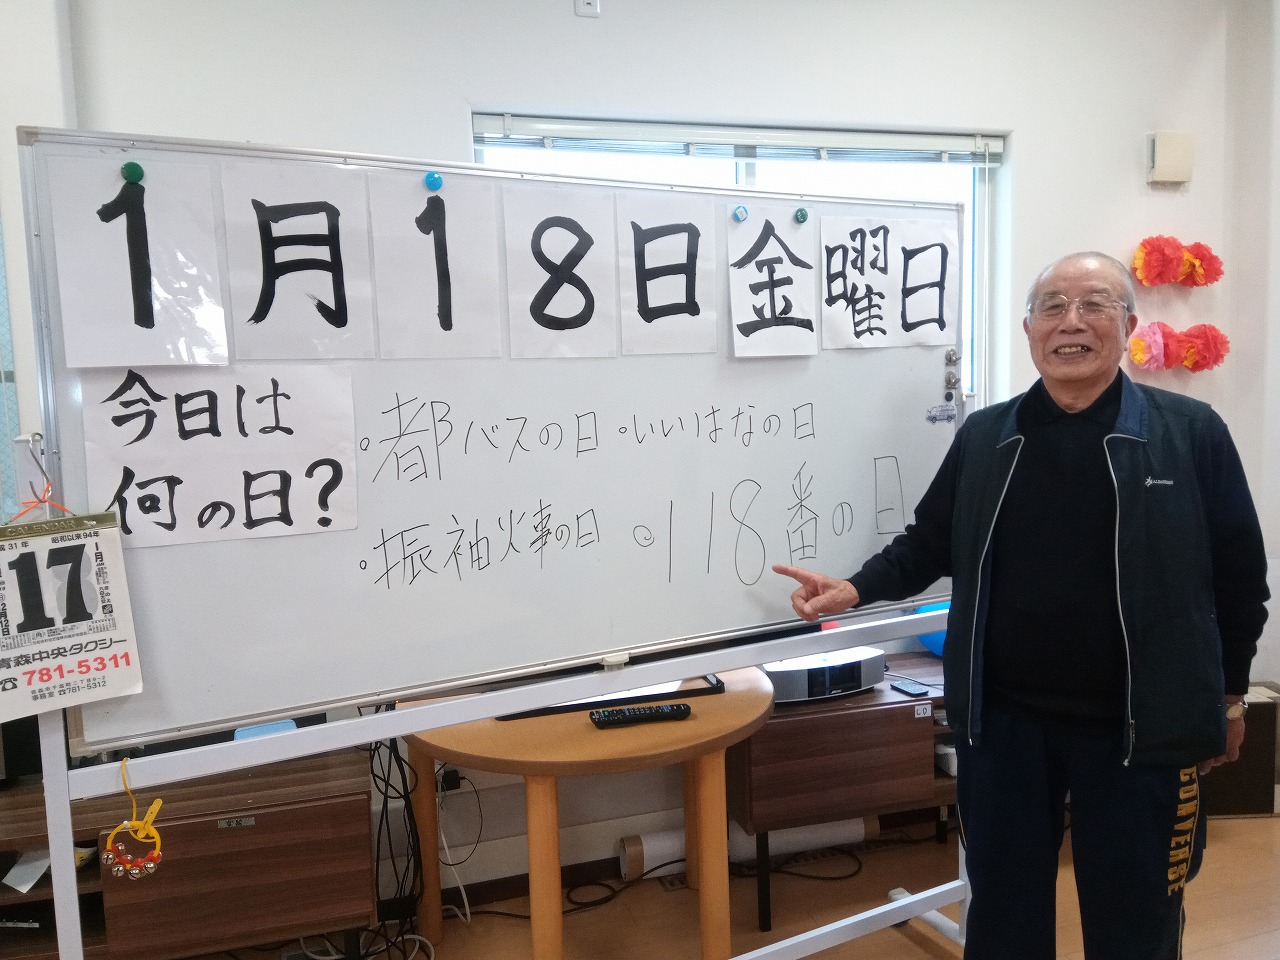 1月18日金曜日
今日は
何の日?
・都バスの日・いいはなの日
・振袖火事の日 ◎118番の日
CALENDAR
31年 昭和以来94年
1月
17
青森中央タクシー
☎781-5311
事務室 ☎781-5312
CONVERSE